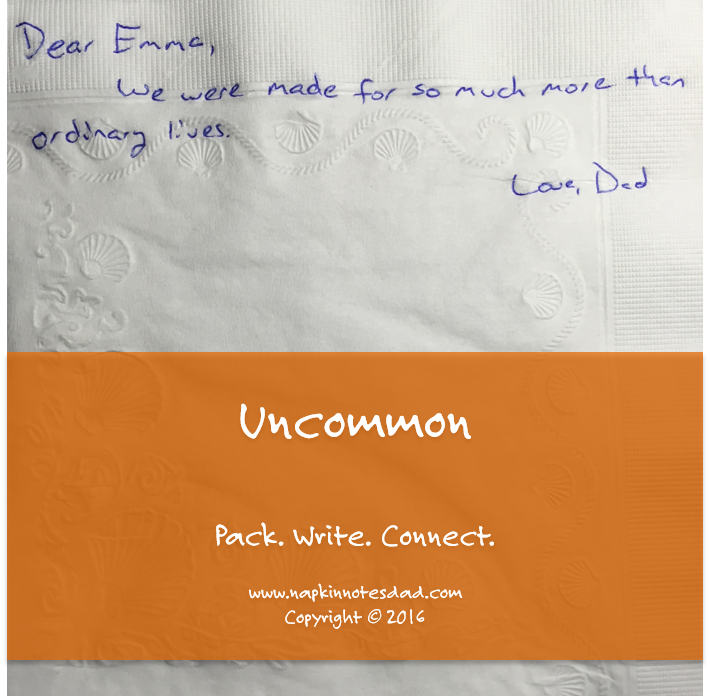 Dear Emma,
We were made for so much more than
ordinary lives.
Love, Dad
Uncommon
Pack. Write. Connect.
www.napkinnotesdad.com
Copyright © 2016